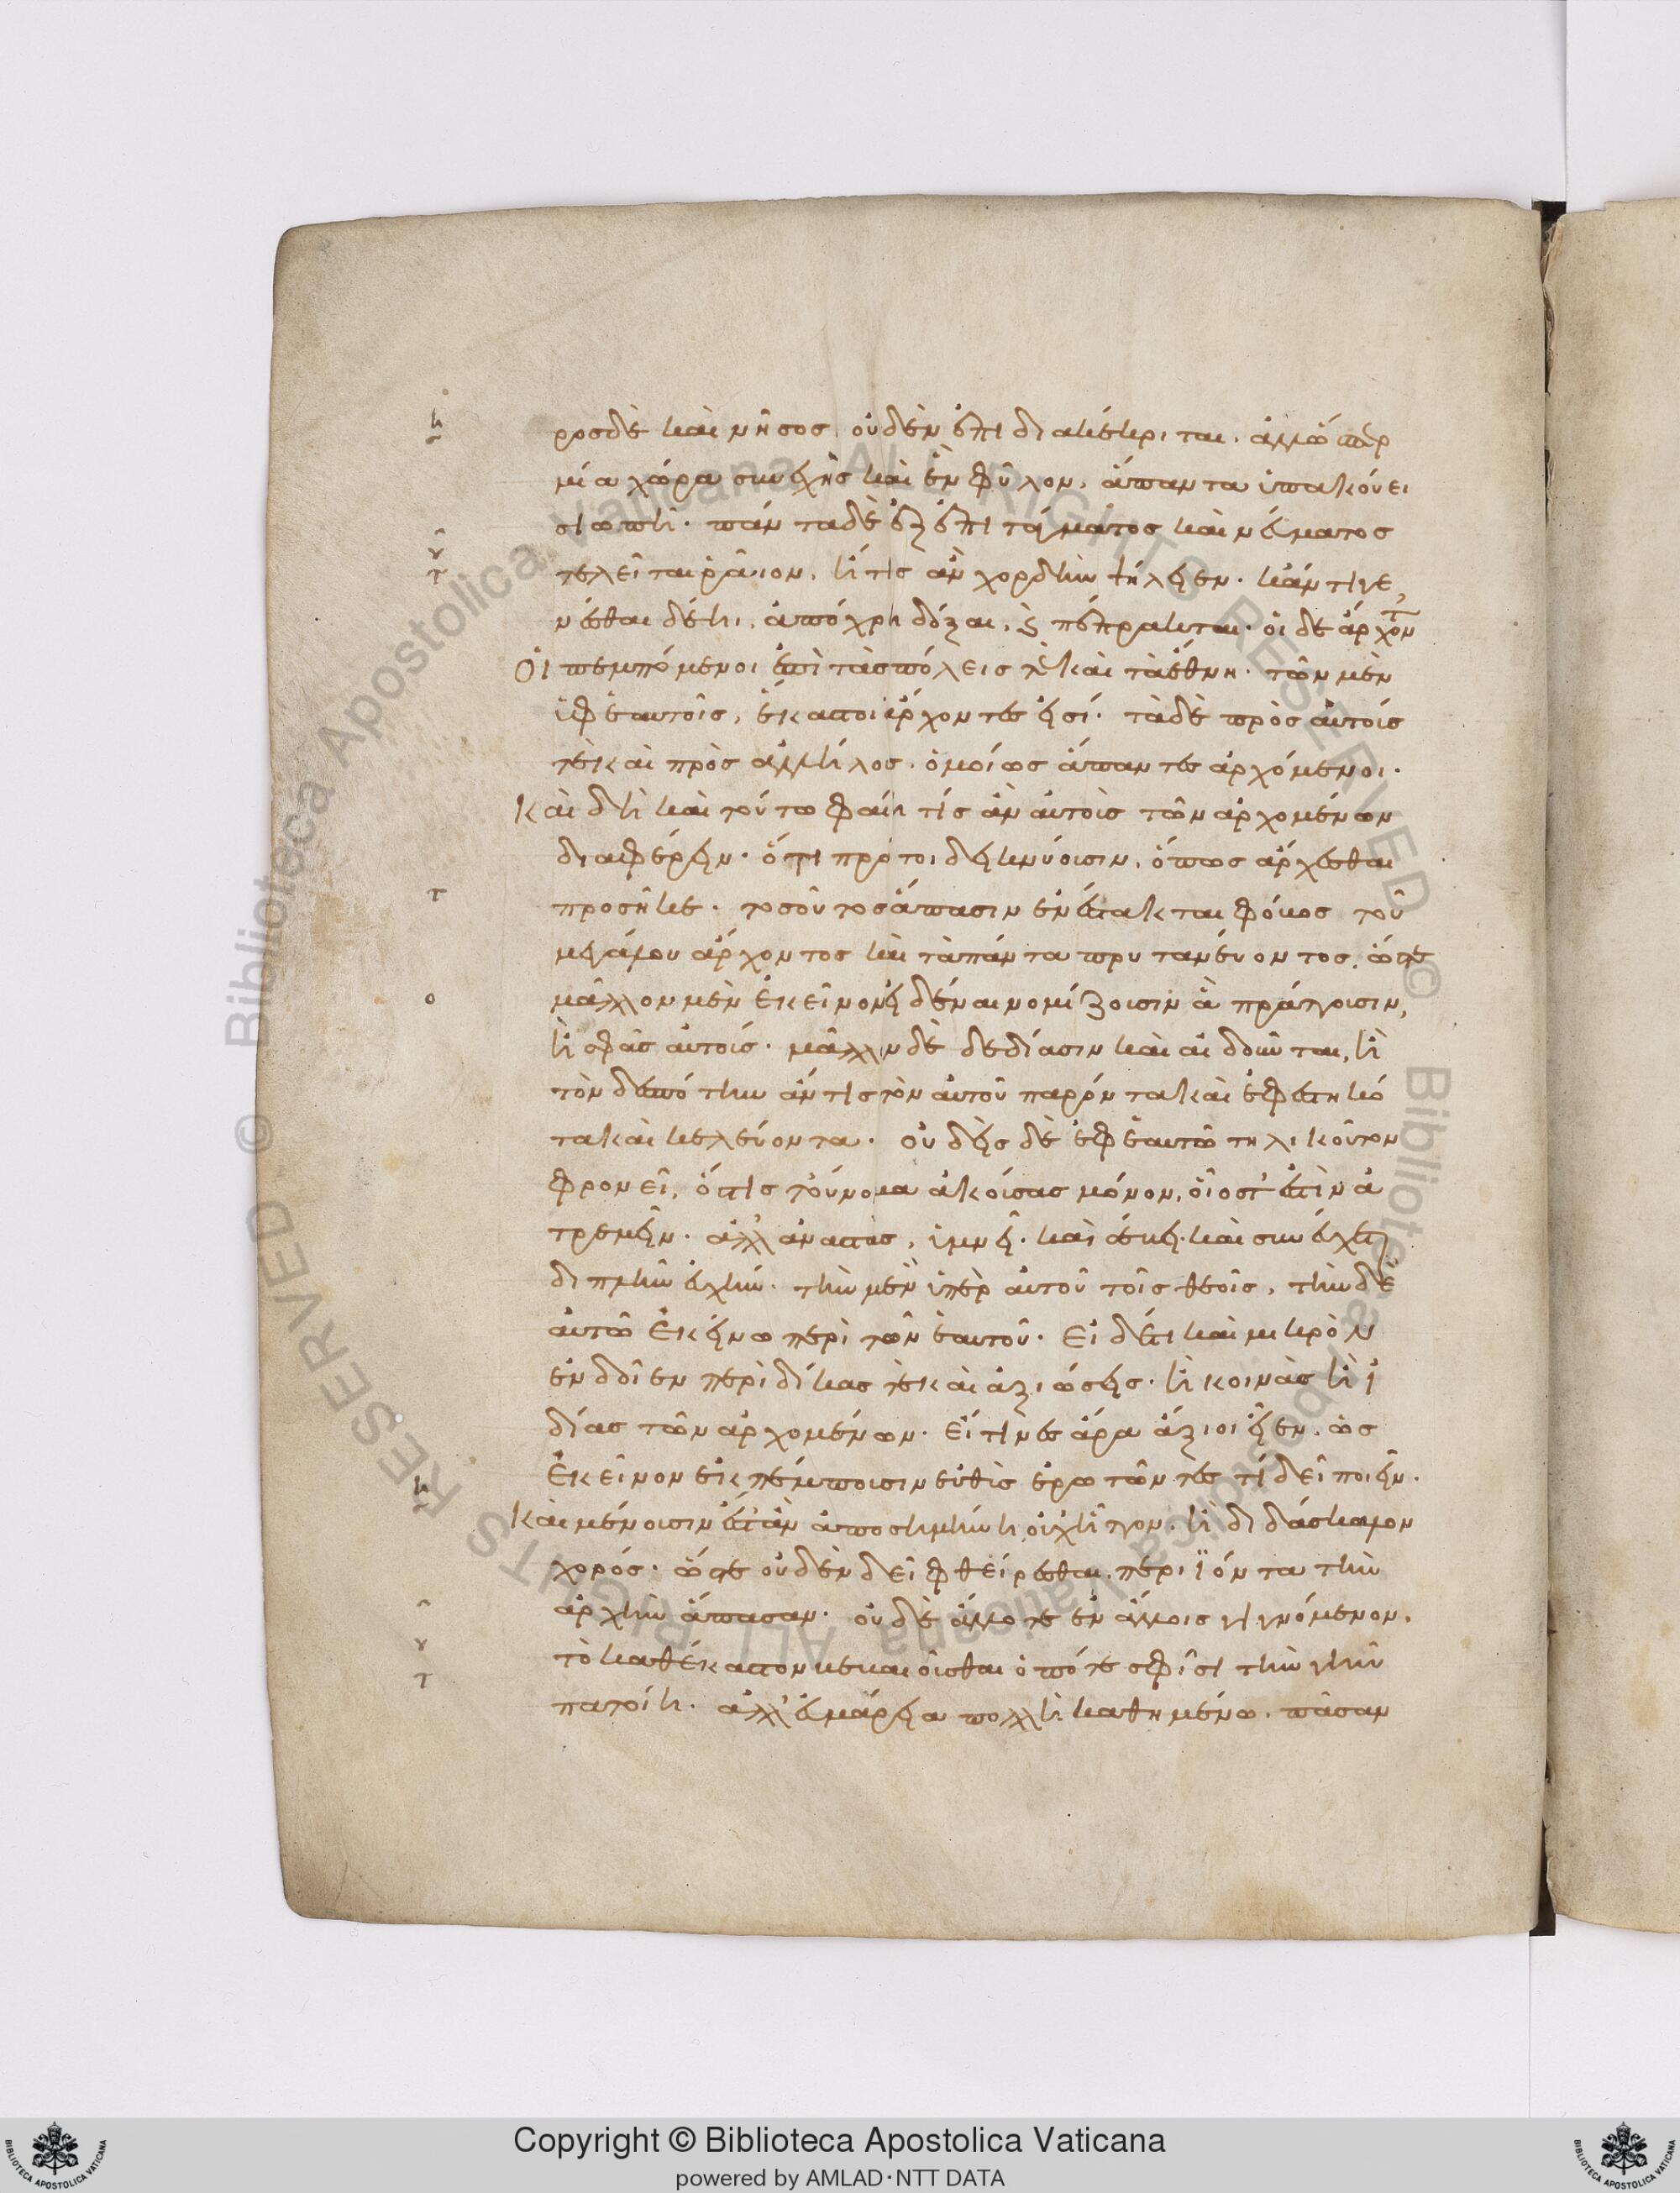 ρος δὲ καὶ νῆσος οὐδὲν ἔτι διακέκριται. ἀλλ' ὥσπερ
μία χώρα συνεχὴς καὶ ἓν φῦλον, ἅπαντα ὑπακούει
σιωπῆι. πάντα δὲ ἐξ ἐπιτάγματος καὶ νεύματος
τελεῖται ῥᾶιον, ἤ τις ἂν χορδὴν ψήλειεν. κἄν τι γε
νέσθαι δέηι, ἀπόχρη δόξαι, καὶ πέπρακται. οἱ δὲ ἄρχοντ
Οἱ πεμπόμενοι ἐπὶ τὰς πόλεις τὲ καὶ τὰ ἔθνη. τῶν μὲν
ὑφ ἑαυτοῖς, ἕκαστοι ἄρχοντες εἰσί. τὰ δὲ πρὸς αὑτούς
τὲ καὶ πρὸς ἀλλήλους. ὁμοίως ἅπαντες ἀρχόμενοι.
Καὶ δὴ καὶ τούτω φαίη τίς ἂν αὐτοὺς τῶν ἀρχομένων
διαφέρειν. ὅτι πρῶτοι δεικνύουσιν, ὅπως ἄρχεσθαι
προσῆκε. τοσοῦτος ἅπασιν ἐνέστακται φόβος τοῦ
μεγάλου ἄρχοντος καὶ τὰ πάντα πρυτανεύοντος. ὥστε
μᾶλλον μὲν ἐκεῖνον εἰδέναι νομίζουσιν ἃ πράττουσιν,
ἢ σφᾶς αὐτούς. μᾶλλον δὲ δεδίασιν καὶ αἰδοῦνται, ἢ
τὸν δεσπότην ἄν τις τὸν αὑτοῦ παρόντα καὶ ἐφεστηκό
τα καὶ κελεύοντα. οὐδεὶς δὲ ἐφ ἑαυτῶ τηλικοῦτον
φρονεῖ, ὅστις τοὔνομα ἀκούσας μόνον, οἷός τ' ἐστὶν ἀ
τρεμεῖν. ἀλλ' ἀναστὰς, ὑμνεῖ. καὶ σέβει. καὶ συνεύχεται
διπλῆν εὐχήν. τὴν μὲν ὑπὲρ αὐτοῦ τοῖς θεοῖς, τὴν δὲ
αὐτῶ ἐκείνω περὶ τῶν ἑαυτοῦ. Εἰ δέ τι καὶ μικρὸν
ἐνδοῖεν περὶ δίκας τὲ καὶ ἀξιώσεις. ἢ κοινὰς ἢ ἰ
δίας τῶν ἀρχομένων. εἴ τινες ἄρα ἄξιοι εἶεν. ὡς
Ἐκεῖνον ἐκπέμπουσιν εὐθὺς ἐρωτῶντες τί δεῖ ποιεῖν.
Καὶ μένουσιν ἔστ' ἂν ἀποσημήνηι, οὐχ ἧττον. ἢ διδάσκαλον
χορός. ὥστε οὐδὲν δεῖ φθείρεσθαι, περιϊόντα τὴν
ἀρχὴν ἅπασαν. οὐδὲ ἄλλοτε ἐν ἄλλοις γιγνόμενον,
τὸ καθέκαστον βεβαιοῦσθαι ὁπότε σφίσι τὴν γῆν
πατοίη. ἀλλ' εὐμάρεια πολλὴ καθημένω. πᾶσαν
Copyright © Biblioteca Apostolica Vaticana
powered by AMLAD·NTT DATA